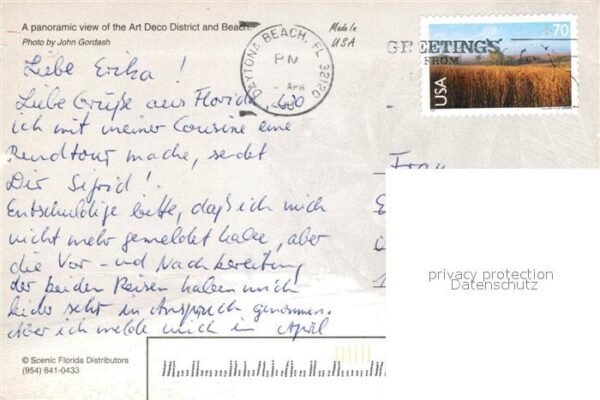 A panoramic view of the Art Deco District and Beach.
Photo by John Gordash
Made in
USA
DAYTONA BEACH, FL 32120
PM
APR
GREETINGS
FROM
70
USA
Liebe Erika !
Liebe Grüße aus Florida, wo
ich mit meiner Cousine eine
Rundtour mache, sendet
Dir Sigrid !
Entschuldige bitte, daß ich mich
nicht mehr gemeldet habe, aber
die Vor- und Nachbereitung
der beiden Reisen haben mich
leider sehr in Anspruch genommen.
Aber ich melde mich im April
Frau
privacy protection
Datenschutz
© Scenic Florida Distributors
(954) 641-0433